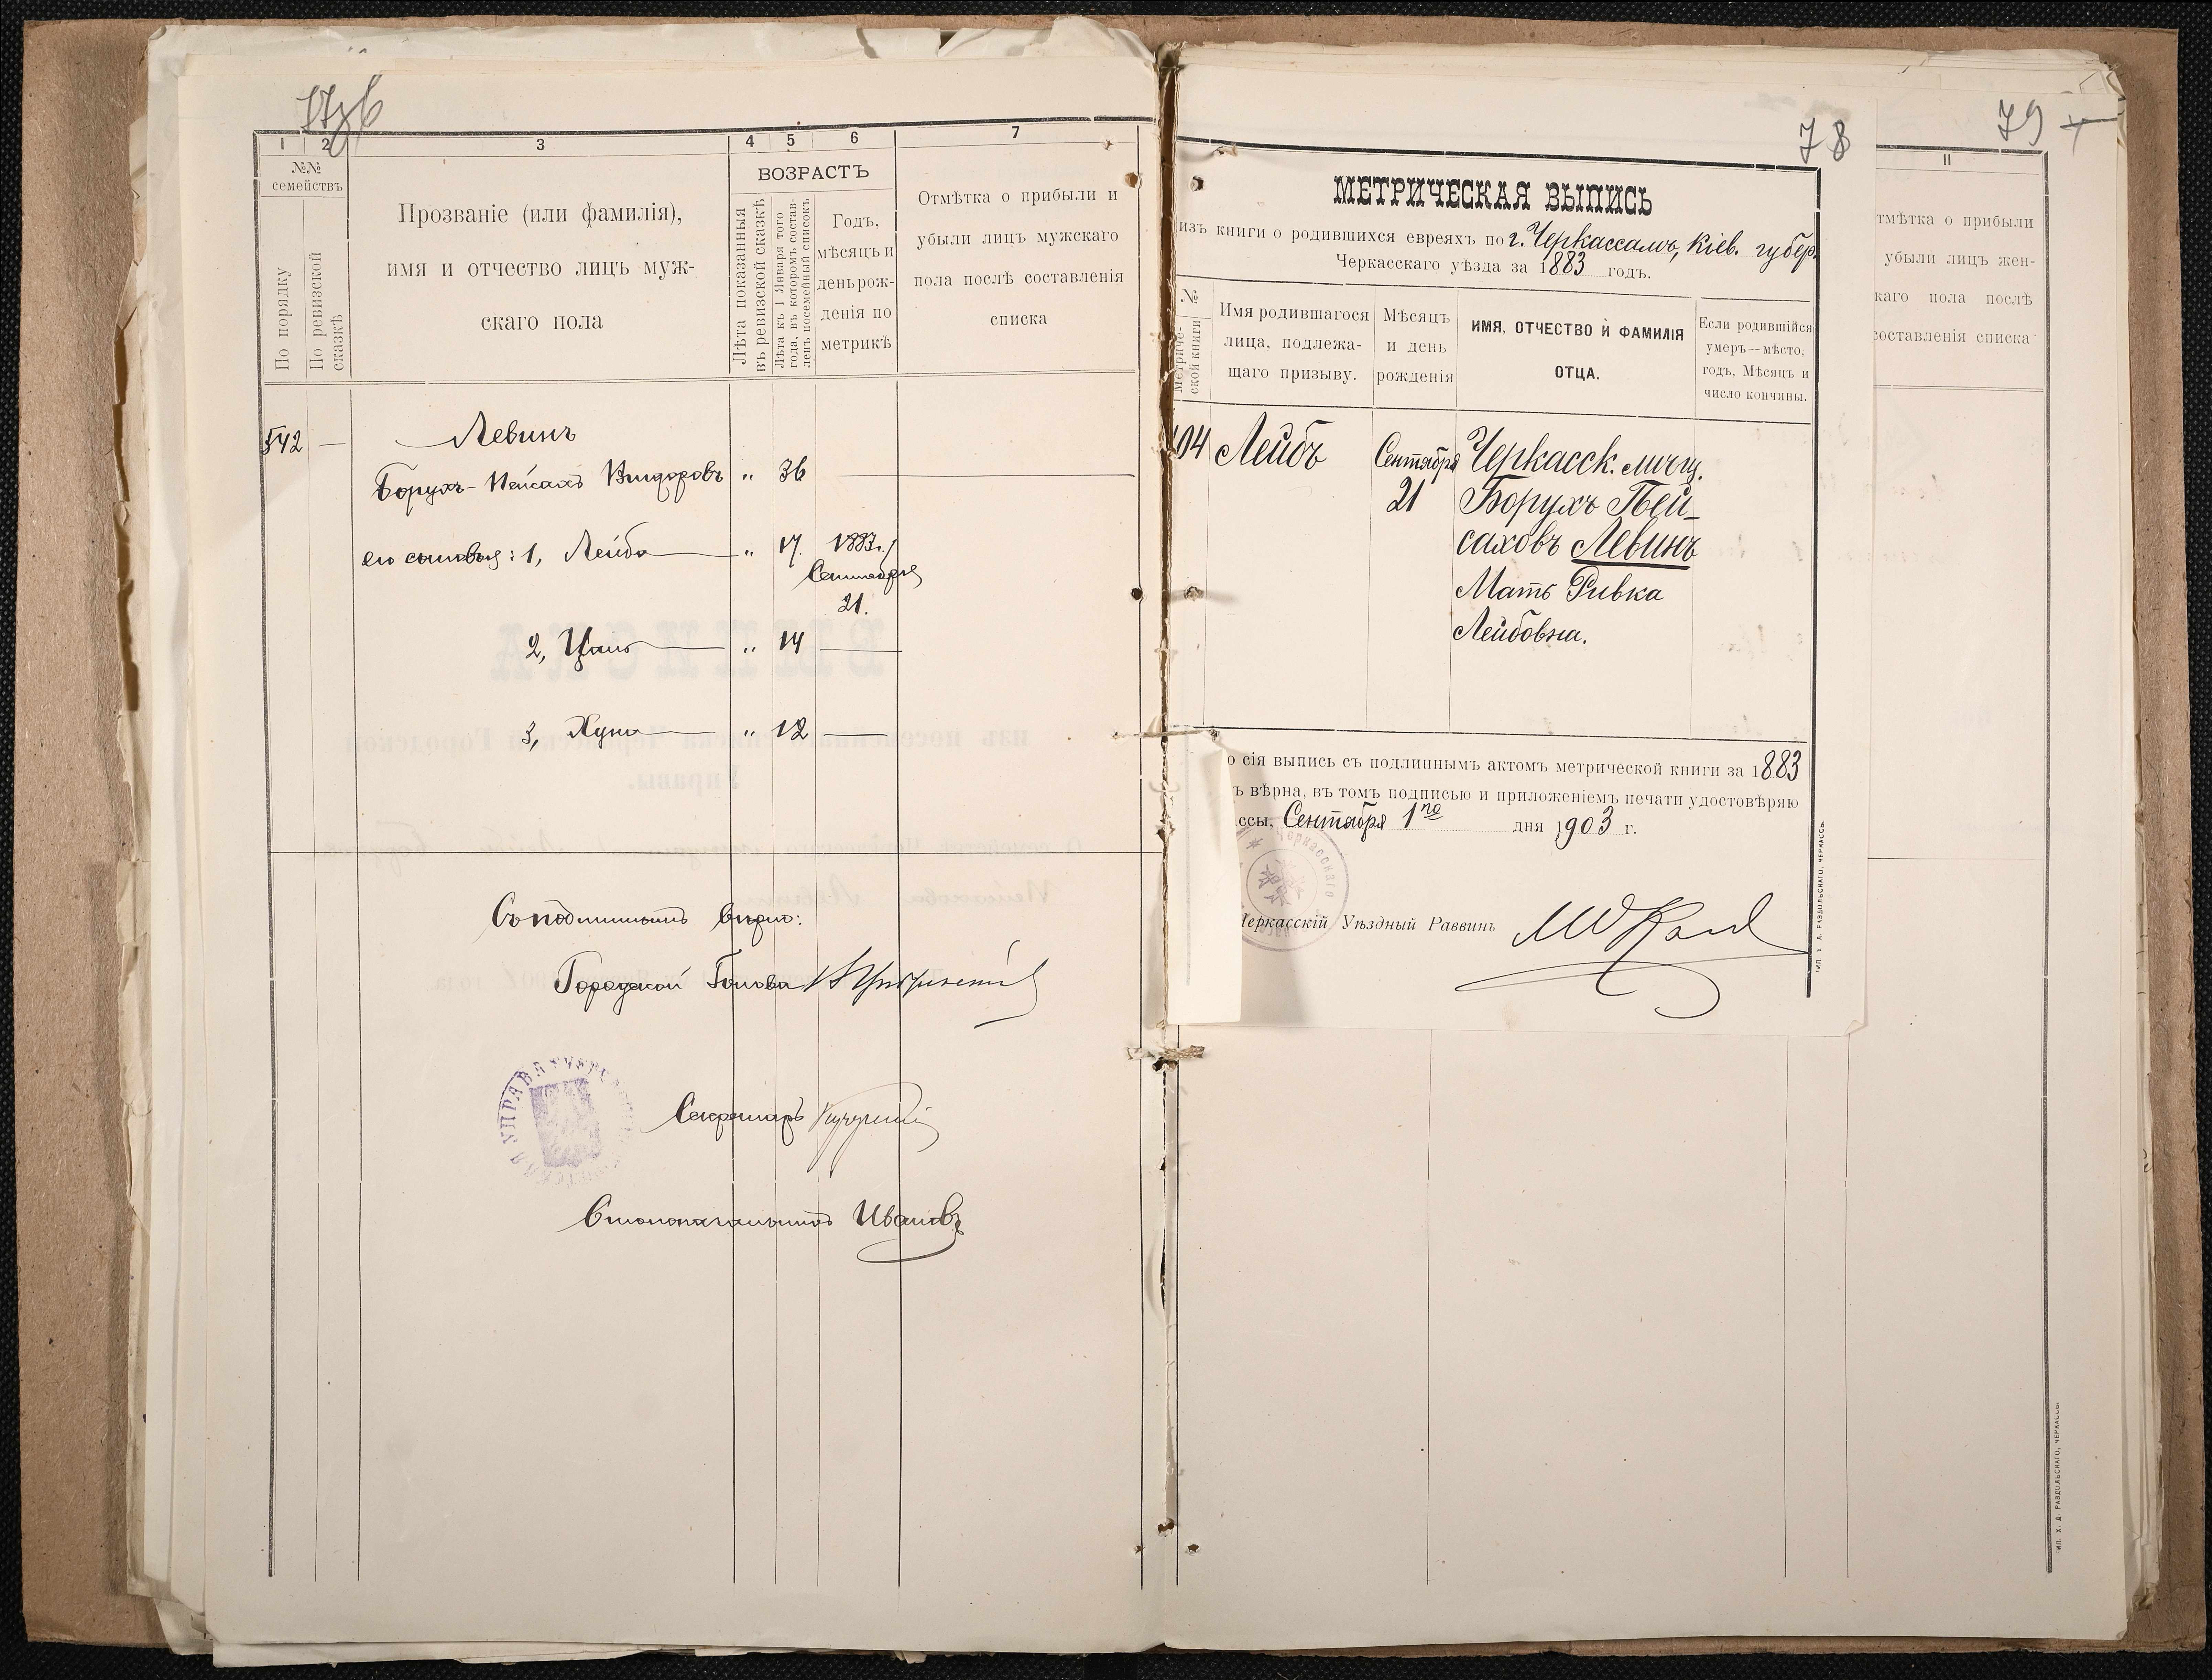 1 2 3 4 5 6 7
№№
семействъ
По порядку
По ревизской
сказкѣ
Прозваніе (или фамилія),
имя и отчество лицъ муж-
скаго пола
ВОЗРАСТЪ
Лѣта показанныя
въ ревизской сказкѣ
Лѣта къ 1 Января того
года, въ которомъ состав-
ленъ посемейный списокъ
Годъ,
мѣсяцъ и
день рож-
денія по
метрикѣ
Отмѣтка о прибыли и
убыли лицъ мужскаго
пола послѣ составленія
списка
542 — Левинъ
Борухъ-Пейсахъ „ 36
его сыновья: 1, Лейба „ 17. 1883 г.
Сентября
21.
2, „ 14
3, Хуна „ 12
Съ подлиннымъ вѣрно:
Городской Голова
Секретарь
УПРАВА
Столоначальникъ Ивановъ
78
МЕТРИЧЕСКАЯ ВЫПИСЬ
изъ книги о родившихся евреяхъ по г. Черкассамъ, Кіев. губер.
Черкасскаго уѣзда за 1883 годъ.
№
метриче-
ской книги
Имя родившагося
лица, подлежа-
щаго призыву.
Мѣсяцъ
и день
рожденія
ИМЯ, ОТЧЕСТВО И ФАМИЛІЯ
ОТЦА.
Если родившійся
умеръ—мѣсто,
годъ, Мѣсяцъ и
число кончины.
Лейбъ Сентября Черкасск. мѣщ.
21 Борухъ Пей-
саховъ Левинъ
Мать Ривка
Лейбовна.
о сія выпись съ подлиннымъ актомъ метрической книги за 1883
ъ вѣрна, въ томъ подписью и приложеніемъ печати удостовѣряю
ссы, Сентября 1го дня 1903 г.
Черкасскаго
Черкасскій Уѣздный Раввинъ
ТИП. Х. Д. РАЗДОЛЬСКАГО, ЧЕРКАССЫ.
79
11
тмѣтка о прибыли
убыли лицъ жен-
каго пола послѣ
составленія списка
ТИП. Х. Д. РАЗДОЛЬСКАГО, ЧЕРКАССЫ.